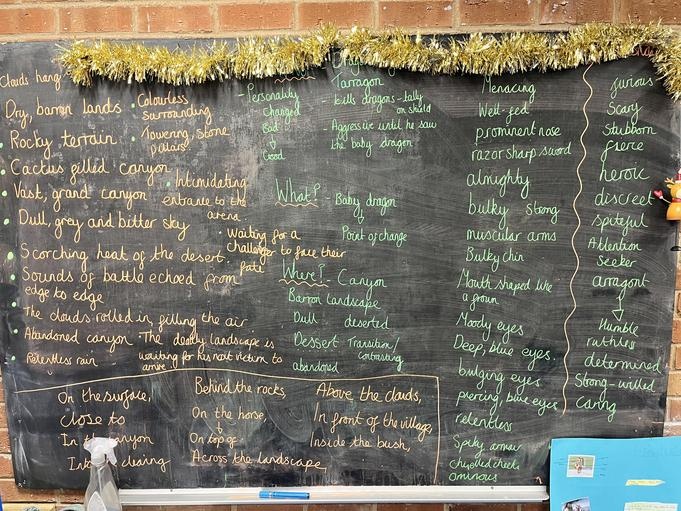 Clouds hang
Dry, barron lands
Rocky terrain
Cactus filled canyon
Vast, grand canyon
Dull, grey and bitter sky
Scorching heat of the desert
Sounds of battle echoed from
edge to edge
The clouds rolled in, filling the air
Abandoned canyon
Relentless rain
Colourless
surrounding
Towering, stone
pillars
Intimidating
entrance to the
arena
Waiting for a
challenger to face their
fate
The deadly landscape is
waiting for his next victim to
arrive
Personality
Changed
Bad
Good
Tarragon
kills dragons - tally
on shield
Aggressive until he saw
the baby dragon
What? - Baby dragon
Point of change
Where? Canyon
Barron landscape
Dull deserted
Dessert Transition/
contrasting
abandoned
Menacing
Well-fed
prominent nose
razor sharp sword
almighty
bulky strong
muscular arms
Bulky chin
Mouth shaped like
a frown
Moody eyes
Deep, blue eyes
bulging eyes
piercing, blue eyes
relentless
Spiky armour
chiselled cheeks
ominous
furious
Scary
Stubborn
fierce
heroic
discreet
spiteful
Attention
seeker
arragont
Humble
ruthless
determined
Strong-willed
caring
On the surface,
close to
In the canyon
Into clearing
Behind the rocks,
On the horse,
On top of
Across the landscape
Above the clouds,
In front of the village,
Inside the bush,